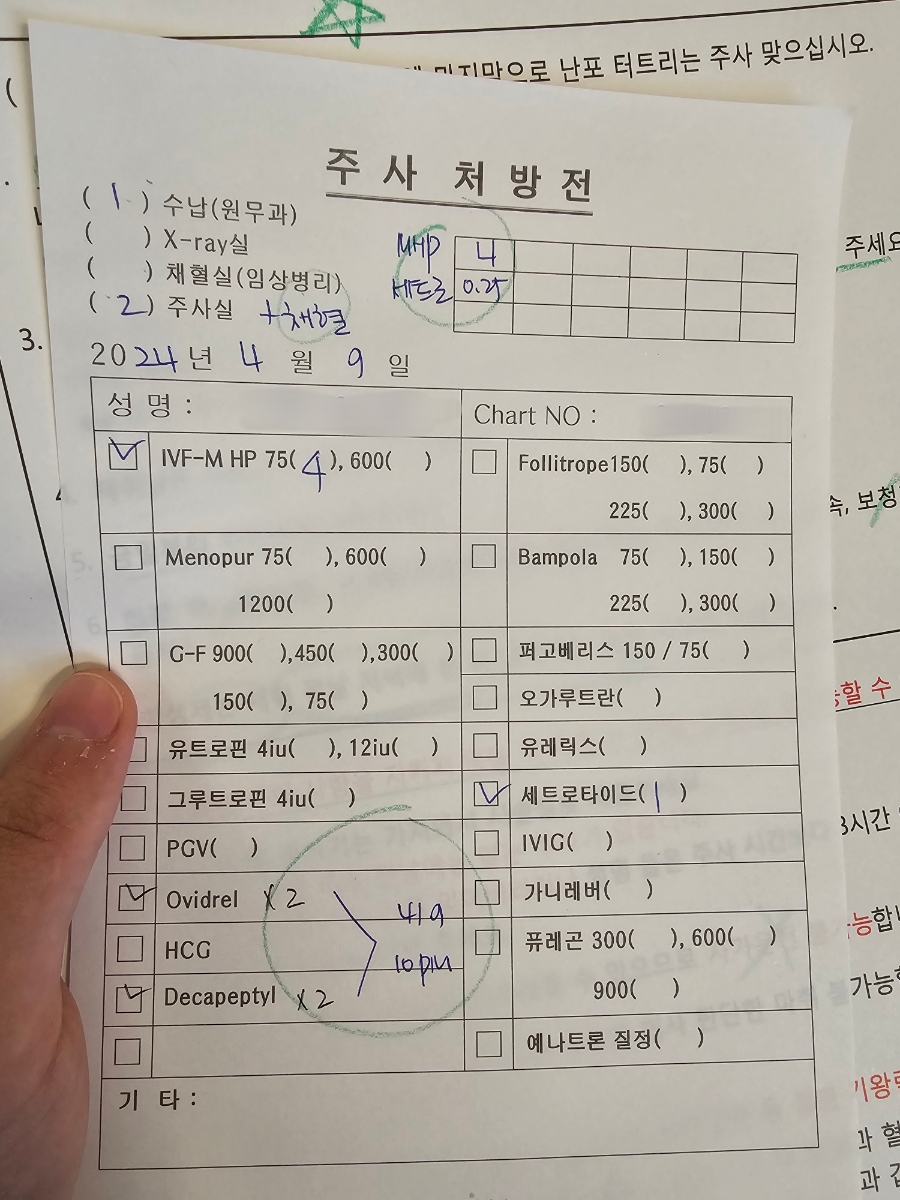 마지막으로 난포 터트리는 주사 맞으십시오.
주 사 처 방 전
( 1 ) 수납(원무과)
( ) X-ray실
( ) 채혈실(임상병리)
( 2 ) 주사실 + 채혈
MHP 4
세트로 0.25
2024년 4월 9일
성 명 :
Chart NO :
IVF-M HP 75( 4 ), 600( )
Follitrope150( ), 75( )
225( ), 300( )
Menopur 75( ), 600( )
1200( )
Bampola 75( ), 150( )
225( ), 300( )
G-F 900( ),450( ),300( )
150( ), 75( )
퍼고베리스 150 / 75( )
오가루트란( )
유트로핀 4iu( ), 12iu( )
유레릭스( )
그루트로핀 4iu( )
세트로타이드( 1 )
PGV( )
IVIG( )
Ovidrel x 2
가니레버( )
HCG
4/9
10pm
퓨레곤 300( ), 600( )
900( )
Decapeptyl x 2
예나트론 질정( )
기 타 :
3.
주세요
속, 보청
능할 수
3시간
능합니
가능한
기왕력
과 혈
과 갑